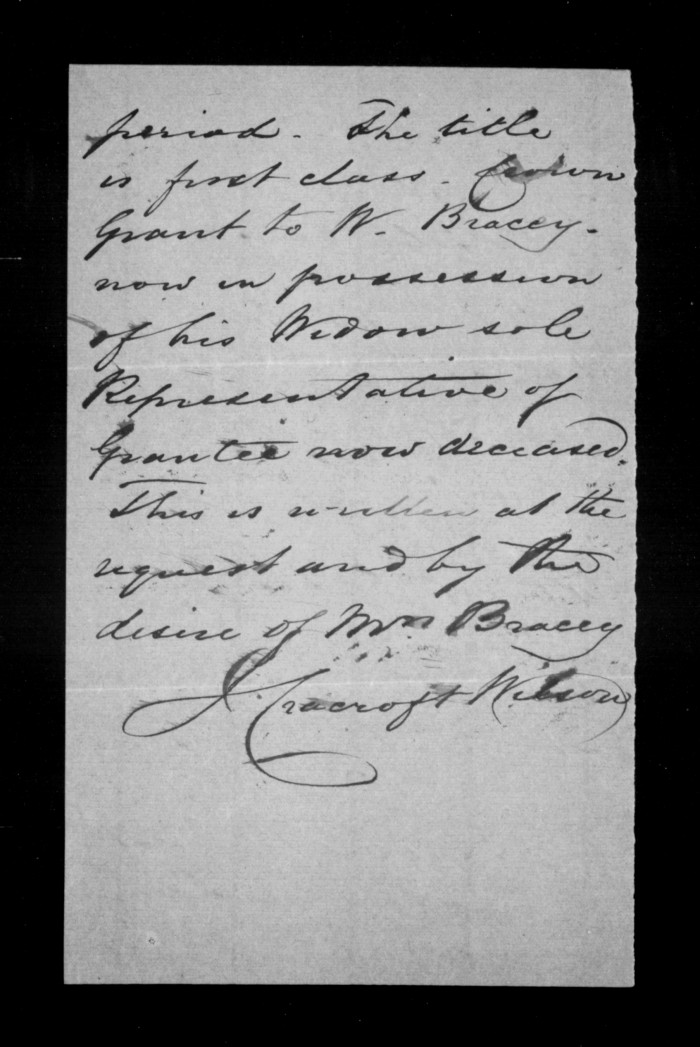 period. The title
is first class. Crown
Grant to W. Bracey.
now in possession
of his Widow sole
Representative of
Grantee now deceased.
This is written at the
request and by the
desire of Mrs Bracey
J. Cracroft Wilson